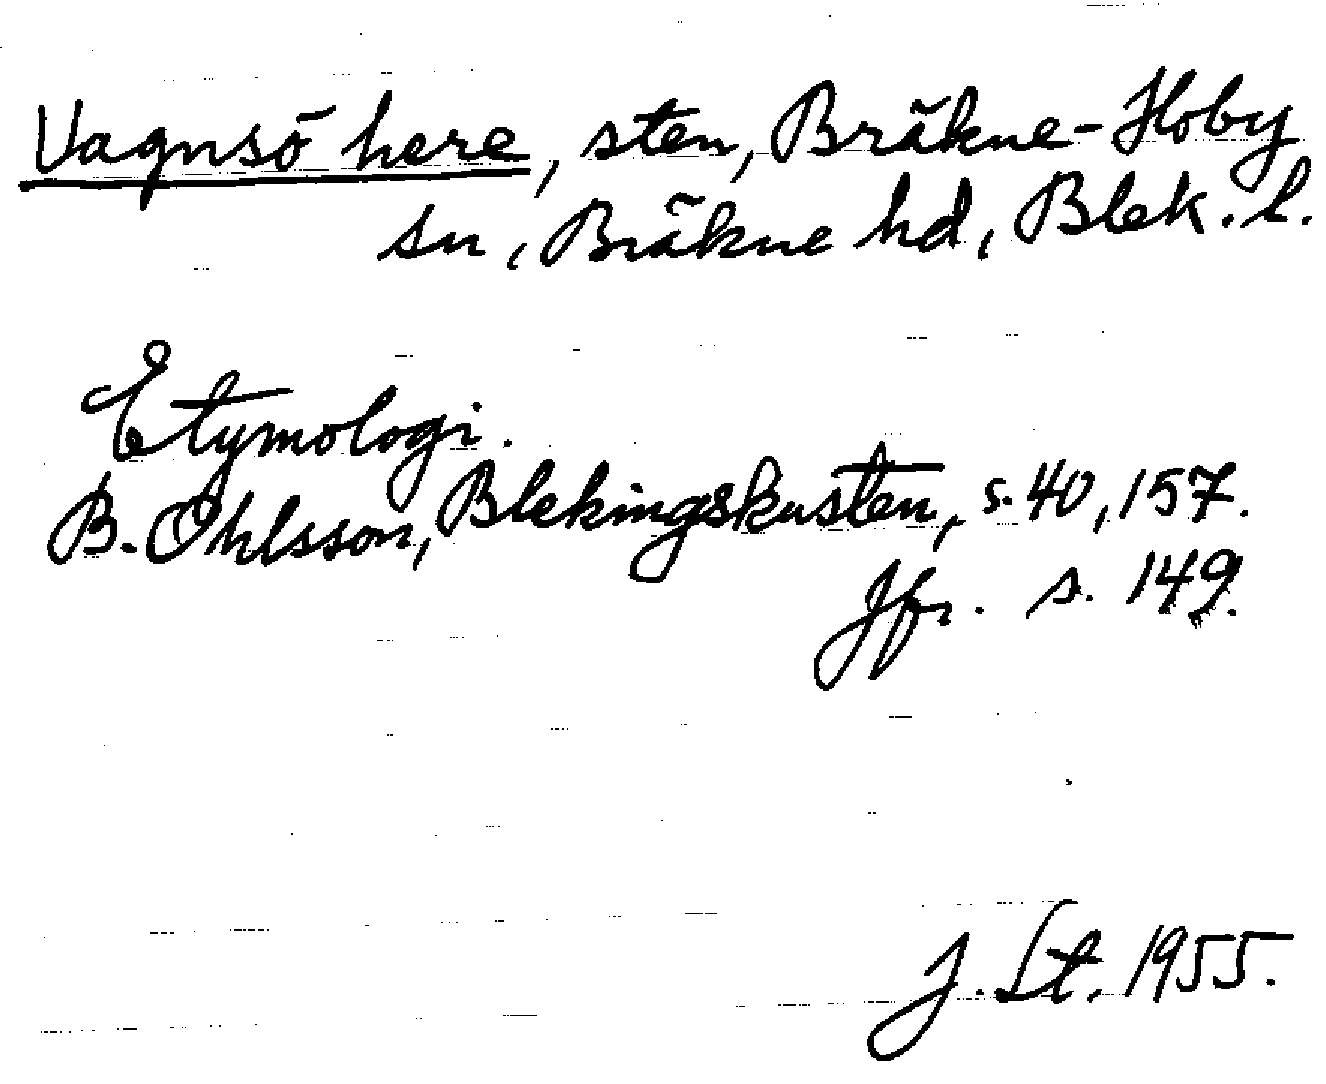 Vagnsö here, sten, Bräkne-Hoby
sn, Bräkne hd, Blek. l.
Etymologi.
B. Ohlsson, Blekingskusten, s. 40, 157.
Jfr. s. 149.
J. St. 1955.